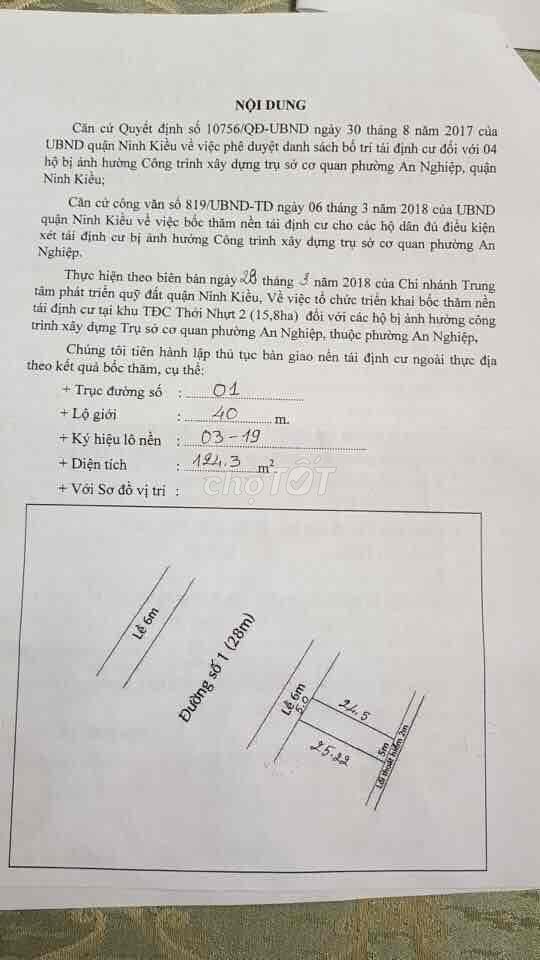 NỘI DUNG
Căn cứ Quyết định số 10756/QĐ-UBND ngày 30 tháng 8 năm 2017 của
UBND quận Ninh Kiều về việc phê duyệt danh sách bố trí tái định cư đối với 04
hộ bị ảnh hưởng Công trình xây dựng trụ sở cơ quan phường An Nghiệp, quận
Ninh Kiều;
Căn cứ công văn số 819/UBND-TD ngày 06 tháng 3 năm 2018 của UBND
quận Ninh Kiều về việc bốc thăm nền tái định cư cho các hộ dân đủ điều kiện
xét tái định cư bị ảnh hưởng Công trình xây dựng trụ sở cơ quan phường An
Nghiệp.
Thực hiện theo biên bản ngày 28 tháng 3 năm 2018 của Chi nhánh Trung
tâm phát triển quỹ đất quận Ninh Kiều, Về việc tổ chức triển khai bốc thăm nền
tái định cư tại khu TĐC Thới Nhựt 2 (15,8ha) đối với các hộ bị ảnh hưởng công
trình xây dựng Trụ sở cơ quan phường An Nghiệp, thuộc phường An Nghiệp,
Chúng tôi tiến hành lập thủ tục bàn giao nền tái định cư ngoài thực địa
theo kết quả bốc thăm, cụ thể:
+ Trục đường số : 01
+ Lộ giới : 40 m.
+ Ký hiệu lô nền : 03-19
+ Diện tích : 124.3 m²
+ Với Sơ đồ vị trí :
chợTỐT
Lề 6m
Đường số 1 (28m)
Lề 6m
5.0
24.5
25.22
5m
Lối thoát hiểm 2m